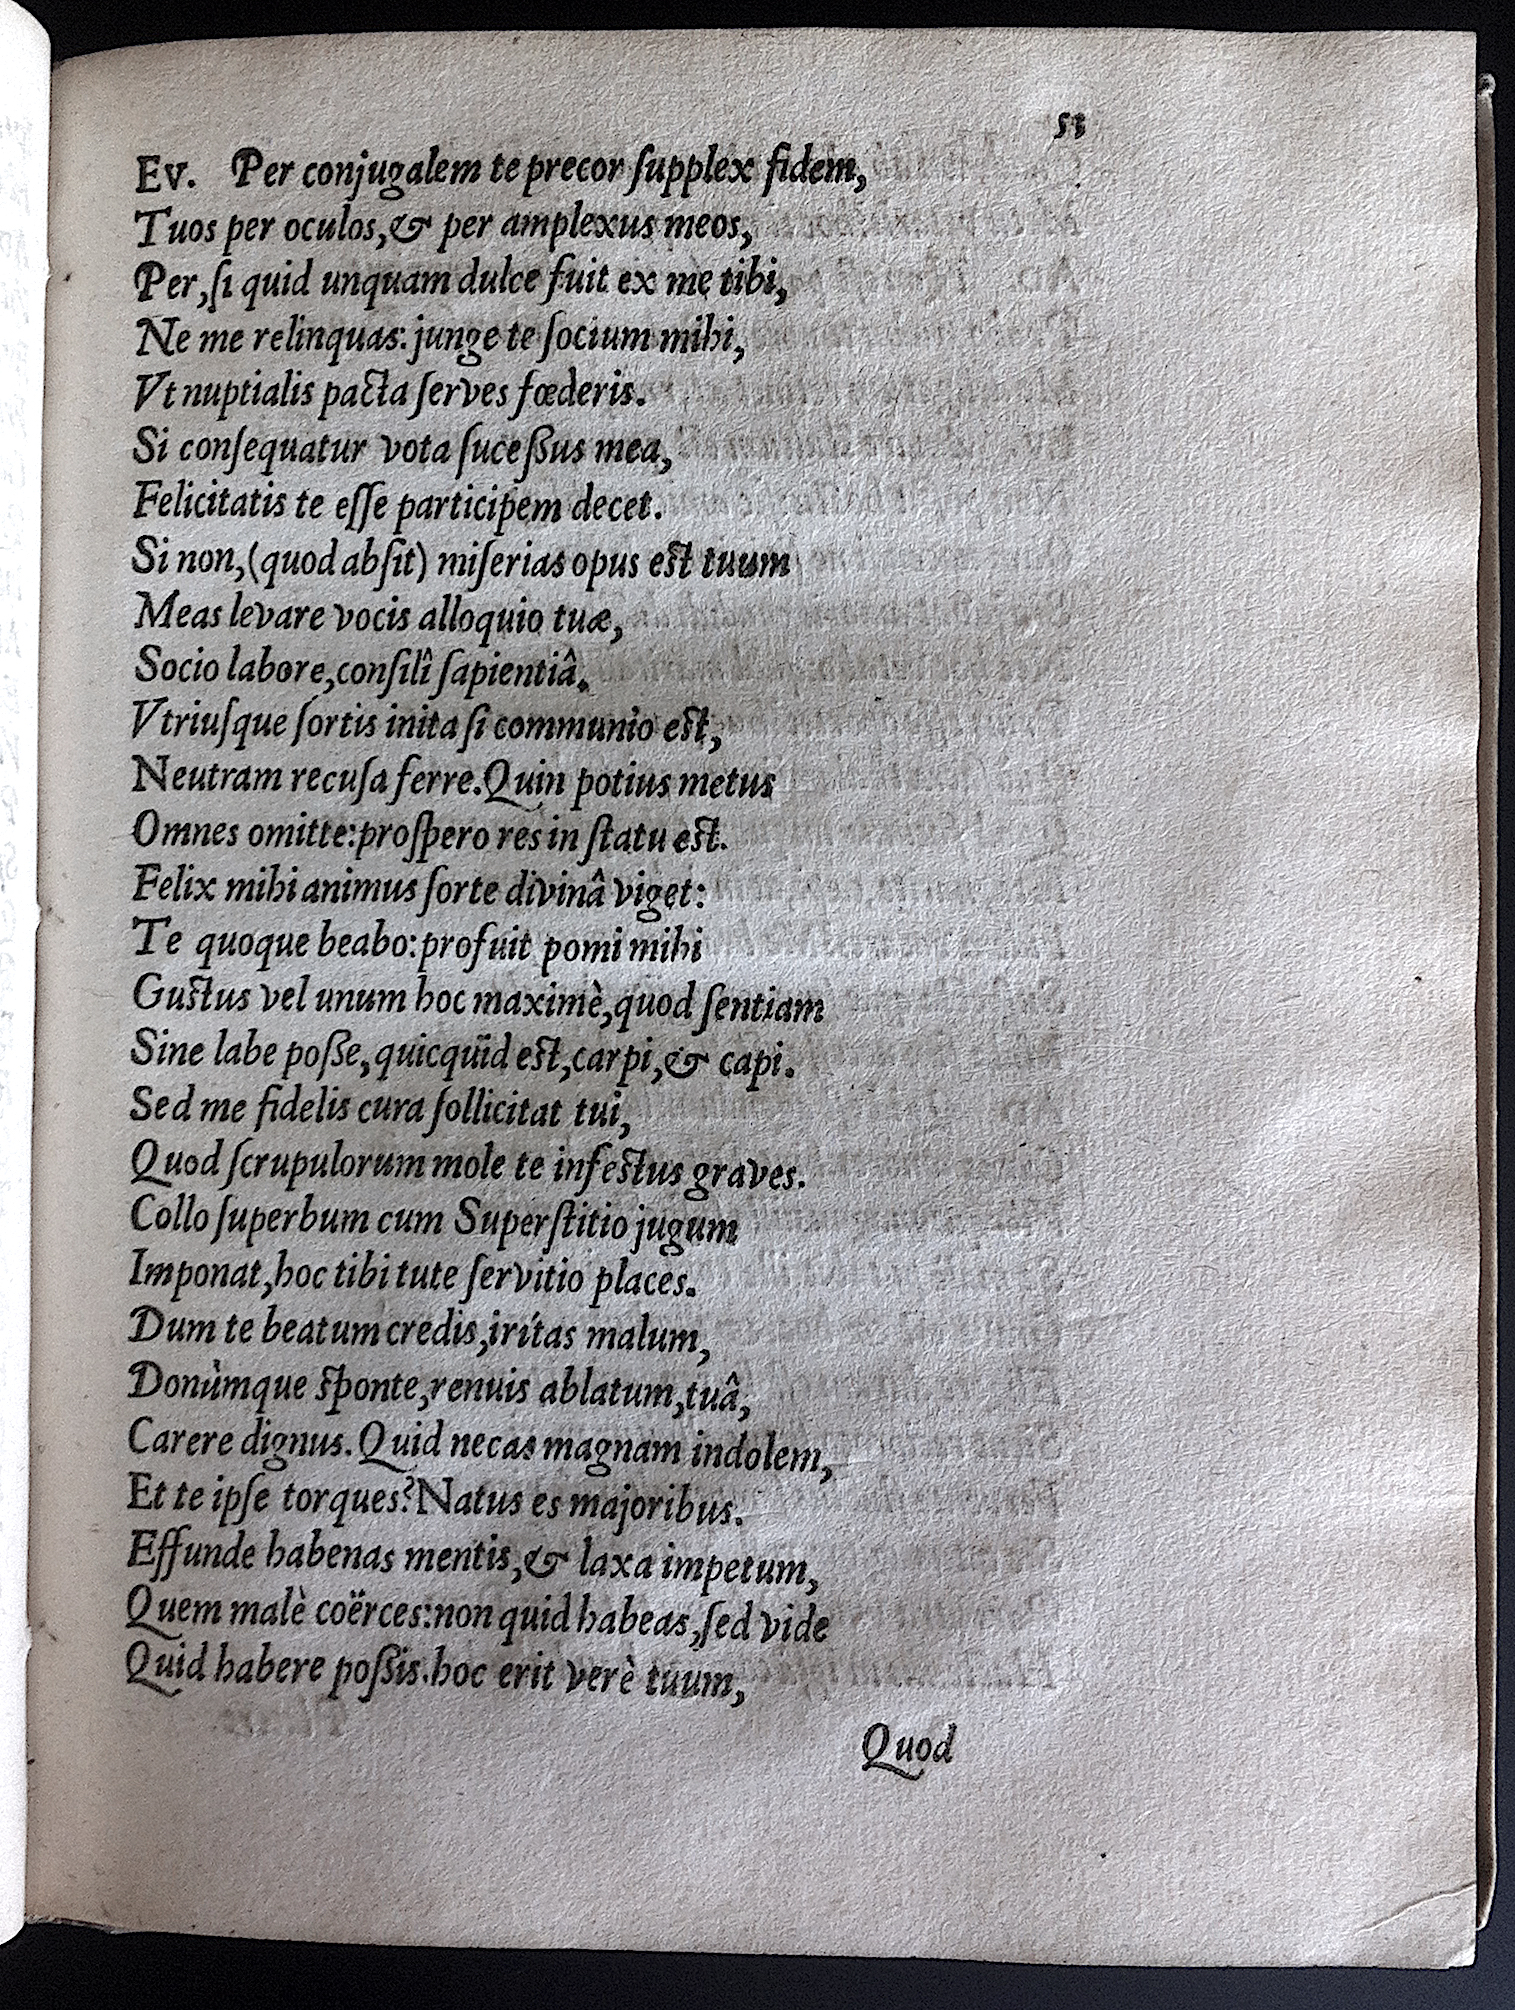 51
Ev. Per conjugalem te precor ſupplex fidem,
Tuos per oculos,& per amplexus meos,
Per,ſi quid unquam dulce fuit ex me tibi,
Ne me relinquas: junge te ſocium mihi,
Vt nuptialis pacta ſerves fœderis.
Si conſequatur vota ſuceßus mea,
Felicitatis te eſſe participem decet.
Si non,(quod abſit) miſerias opus est tuum
Meas levare vocis alloquio tuæ,
Socio labore,conſilî ſapientiâ.
Vtriuſque ſortis inita ſi communio est,
Neutram recuſa ferre.Quin potius metus
Omnes omitte:proſpero res in ſtatu est.
Felix mihi animus ſorte divinâ viget:
Te quoque beabo:profuit pomi mihi
Gustus vel unum hoc maximè,quod ſentiam
Sine labe poße,quicquid est,carpi,& capi.
Sed me fidelis cura ſollicitat tui,
Quod ſcrupulorum mole te infestus graves.
Collo ſuperbum cum Superſtitio jugum
Imponat,hoc tibi tute ſervitio places.
Dum te beatum credis,irítas malum,
Donùmque sponte,renuis ablatum,tuâ,
Carere dignus. Quid necas magnam indolem,
Et te ipſe torques? Natus es majoribus.
Effunde habenas mentis,& laxa impetum,
Quem malè coërces:non quid habeas,ſed vide
Quid habere poßis.hoc erit verè tuum,
Quod